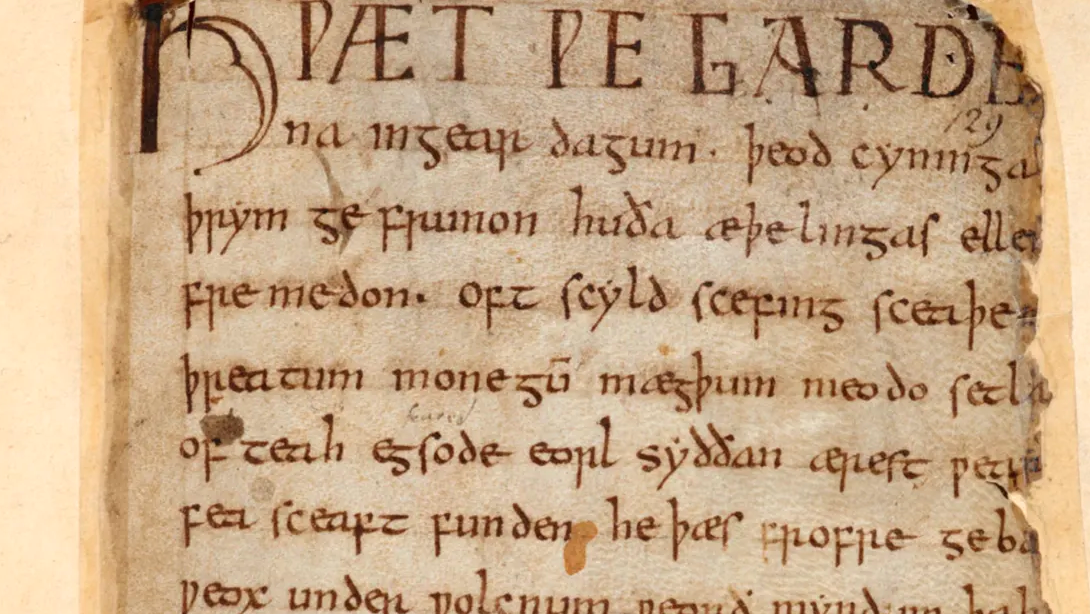 HǷÆT ǷE GARDE
na ingear dagum . þeod cyninga
þrym ge frunon huða æþelingas elle
fremedon. oft scyld scefing sceaþe
þreatum monegū mægþum meodo setla
of teah egsode eorl syððan ærest ƿear
fea sceaft funden he þæs frofre geba
ƿeox under ƿolcnum ƿeorð mynd
129